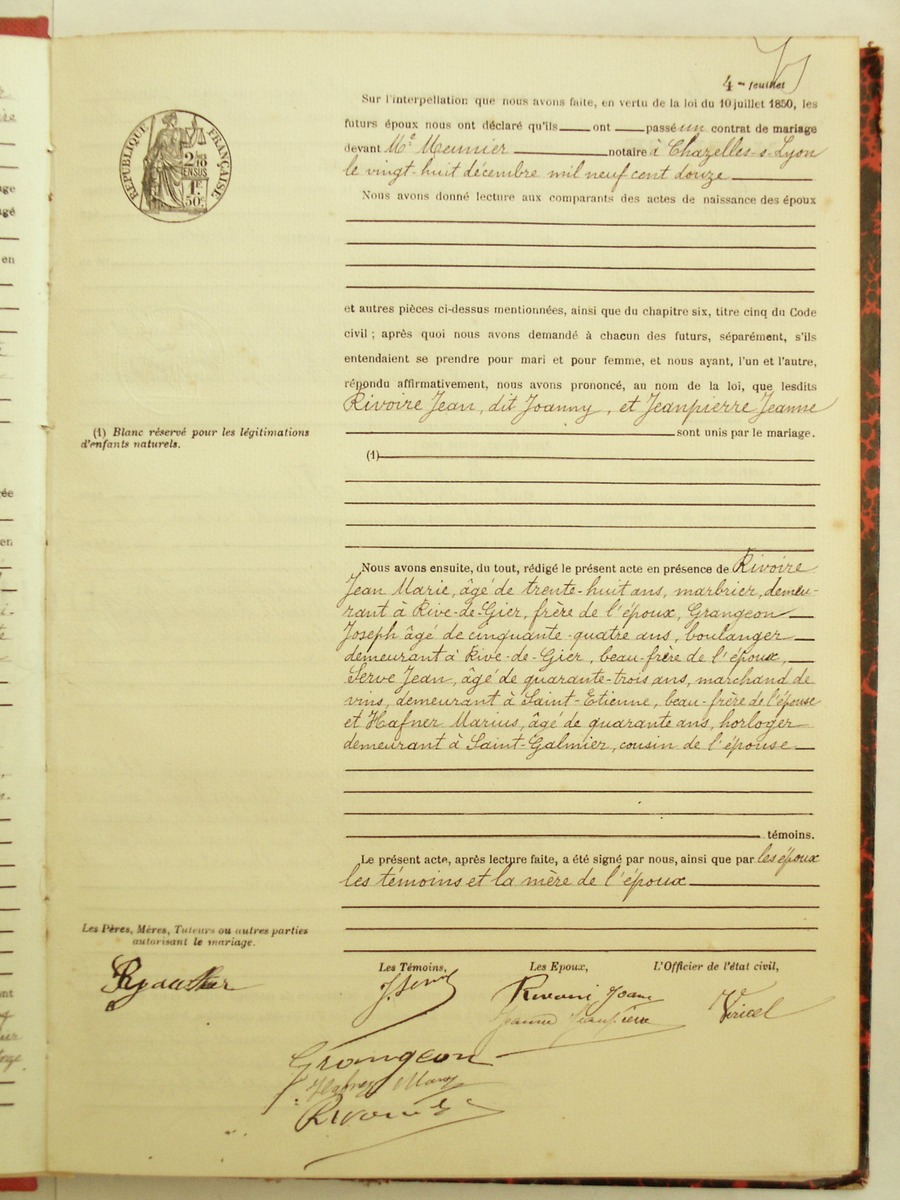 4 - feuillet
RÉPUBLIQUE FRANÇAISE
2 10
EN SUS
1F.
50c.
Sur l'interpellation que nous avons faite, en vertu de la loi du 10 juillet 1850, les
futurs époux nous ont déclaré qu'ils ont passé un contrat de mariage
devant Me Meunier notaire à Chazelles-s-Lyon
le vingt-huit décembre mil neuf cent douze
Nous avons donné lecture aux comparants des actes de naissance des époux
et autres pièces ci-dessus mentionnées, ainsi que du chapitre six, titre cinq du Code
civil ; après quoi nous avons demandé à chacun des futurs, séparément, s'ils
entendaient se prendre pour mari et pour femme, et nous ayant, l'un et l'autre,
répondu affirmativement, nous avons prononcé, au nom de la loi, que lesdits
Rivoire Jean, dit Joanny, et Jeanpierre Jeanne
sont unis par le mariage.
(1) Blanc réservé pour les légitimations
d'enfants naturels.
(1)
Nous avons ensuite, du tout, rédigé le présent acte en présence de Rivoire
Jean Marie, âgé de trente-huit ans, marbrier, demeu-
rant à Rive-de-Gier, frère de l'époux, Grangeon
Joseph âgé de cinquante-quatre ans, boulanger
demeurant à Rive-de-Gier, beau-frère de l'époux,
Serve Jean, âgé de quarante-trois ans, marchand de
vins, demeurant à Saint-Etienne, beau-frère de l'épouse
et Hafner Marius, âgé de quarante ans, horloger
demeurant à Saint-Galmier, cousin de l'épouse
témoins.
Le présent acte, après lecture faite, a été signé par nous, ainsi que par les époux
les témoins et la mère de l'époux
Les Pères, Mères, Tuteurs ou autres parties
autorisant le mariage.
Les Témoins,
Les Epoux,
L'Officier de l'état civil,
J. Serve
Jeanne Jeanpierre
Viricel
Grangeon